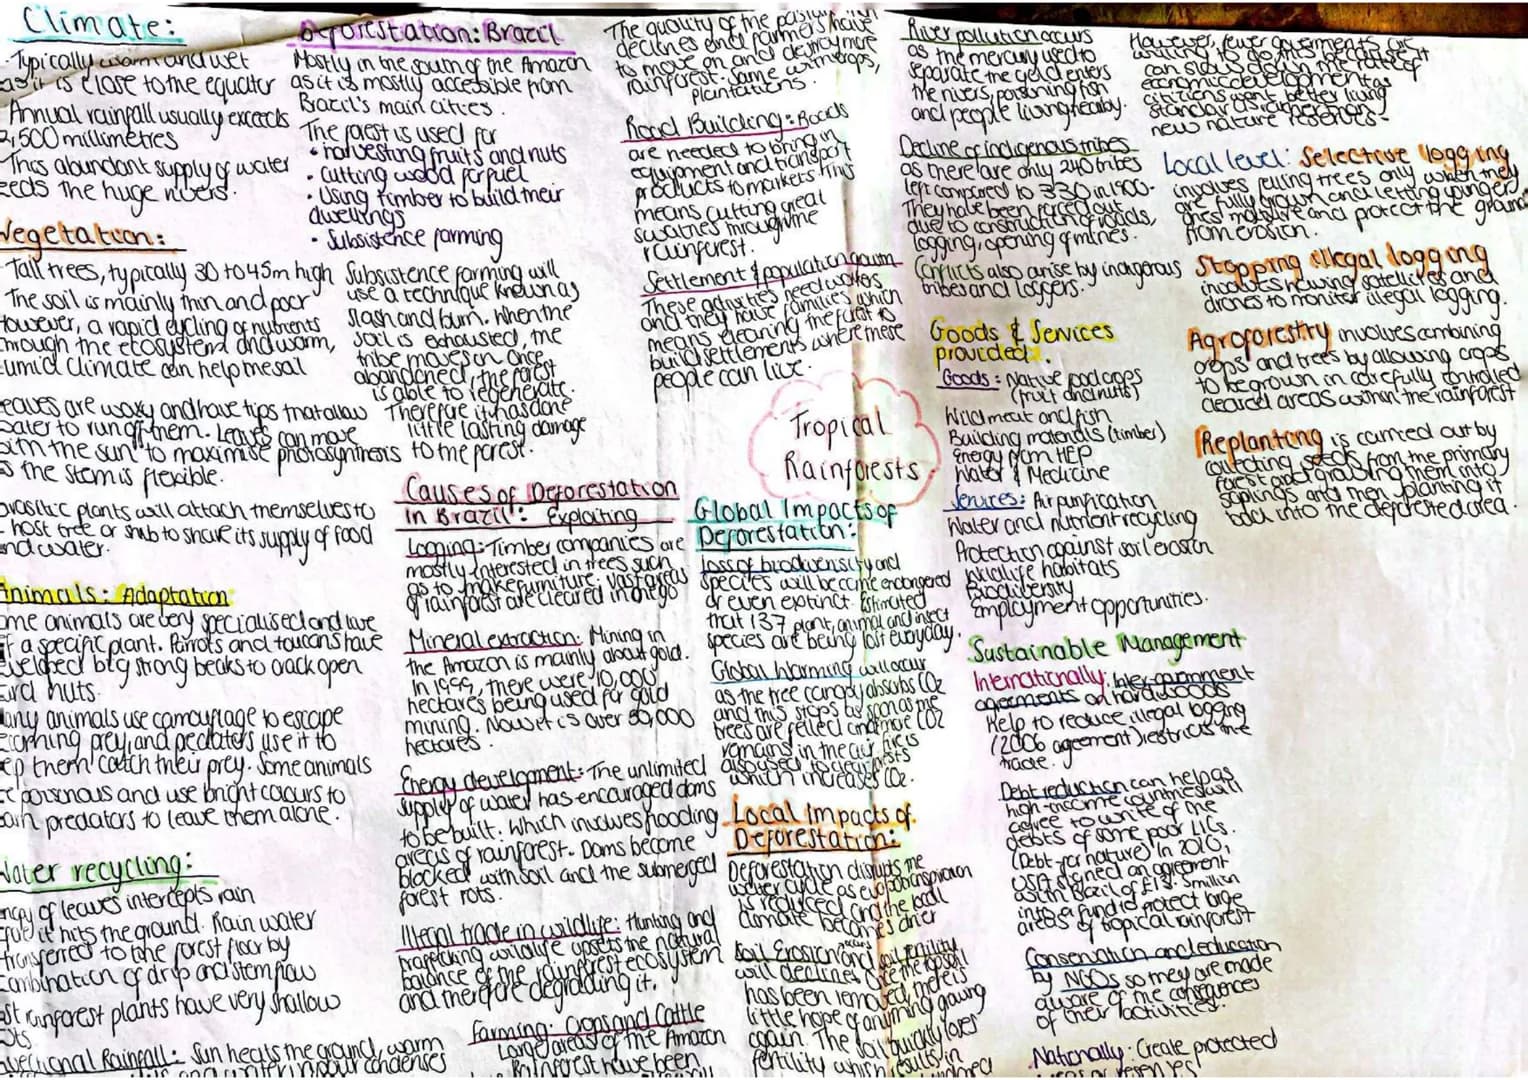 Climate:
Typically warm and wet
as it is close to the equator
Annual rainfall usually exceeds
2,500 millimetres
This abundant supply of water
eeds the huge rivers.
Vegetation:
Tall trees, typically 30 to 45m high
The soil is mainly thin and poor
However, a rapid cycling of nutrients
through the ecosystem and warm,
umid climate can help the soil
eaves are waxy and have tips that allow
water to run off them. Leaves can move
with the sun to maximise photosynthesis
s the stem is flexible.
arasitic plants will attach themselves to
host tree or shrub to share its supply of food
and water.
Animals: Adaptation
ome animals are very specialised and live
a specific plant. Parrots and toucans have
eveloped big strong beaks to crack open
ard nuts.
any animals use camouflage to escape
prey, and predators use it to
ep them catch their prey. Some animals
poisonous and use bright colours to
predators to leave them alone.
Water recycling:
of leaves intercepts rain
it hits the ground. Rain water
transferred to the forest floor by
combination of drip and stem flow
ost rainforest plants have very shallow
ots.
vectional Rainfall: Sun heats the ground, warm
condenses
Deforestation: Brazil
Mostly in the south of the Amazon
as it is mostly accessible from
Brazil's main cities.
The forest is used for
• harvesting fruits and nuts
• cutting wood for fuel
• Using timber to build their
dwellings
• Subsistence farming
Subsistence farming will
use a technique known as
slash and burn. When the
soil is exhausted, the
tribe moves on. Once
abandoned, the forest
is able to regenerate.
Therefore it has done
little lasting damage
to the forest.
Causes of Deforestation
in Brazil: Exploiting
Logging: Timber companies are
mostly interested in trees such
as to make furniture. Vast areas
of rainforest are cleared in one go
Mineral extraction: Mining in
the Amazon is mainly about gold.
In 1999, there were 10,000
hectares being used for gold
mining. Now it is over 50,000
hectares.
Energy development: The unlimited
supply of water has encouraged dams
to be built. Which involves flooding
areas of rainforest. Dams become
blocked with soil and the submerged
forest rots.
Illegal trade in wildlife: Hunting and
trafficking wildlife upsets the natural
balance of the rainforest ecosystem
and therefore degrading it.
Farming: Crops and Cattle
Large areas of the Amazon
Rainforest have been
The quality of the pasture
declines and farmers have
to move on and destroy more
rainforest. Same with crops,
plantations.
Road Building: Roads
are needed to bring in
equipment and transport
products to markets. This
means cutting great
swathes through the
rainforest.
Settlement & population growth
These activities need workers
and they have families which
means clearing the forest to
build settlements where these
people can live.
Tropical
Rainforests
Global Impacts of
Deforestation:
Loss of biodiversity and
species will become endangered
or even extinct. Estimated
that 137 plant, animal and insect
species are being lost everyday.
Global Warming will occur
as the tree canopy absorbs CO2
and this stops as soon as the
trees are felled and more CO2
remains in the air. Fires
also used to clear forests
which increases CO2.
Local Impacts of
Deforestation:
Deforestation disrupts the
water cycle as evapotranspiration
is reduced and the local
climate becomes drier
Soil Erosion and soil fertility
will declines. Once the topsoil
has been removed, there is
little hope of anything growing
again. The soil quickly loses
fertility which results in
River pollution occurs
as the mercury used to
separate the gold enters
the rivers, poisoning fish
and people living nearby.
Decline of indigenous tribes
as there are only 240 tribes
left compared to 330 in 1900.
They have been forced out
due to construction of roads,
logging, opening of mines.
Conflicts also arise by indigenous
tribes and loggers.
Goods & Services
provided:
Goods: Native food crops
(fruit and nuts)
Wild meat and fish
Building materials (timber)
Energy from HEP
Water & Medicine
Services: Air purification
Water and nutrient recycling
Protection against soil erosion
Wildlife habitats
Biodiversity
Employment opportunities.
Sustainable Management
Internationally: Inter-government
agreements on hardwoods
Help to reduce illegal logging
(2006 agreement) restricts the
trade.
Debt reduction can help as
high-income countries will
agree to write of the
debts of some poor LICs.
(Debt-for-nature) In 2010,
USA signed an agreement
with Brazil of £13.5million
into a fund to protect large
areas of tropical rainforest
Conservation and education
by NGOs so they are made
aware of the consequences
of their activities.
Nationally: Create protected
areas or reserves
However, fewer governments are
willing to do this as it
can slow down the rate of
economic development as
citizens want better living
standards rather than
new nature reserves.
Local level: Selective logging
involves felling trees only when they
are fully grown and letting younger
ones mature and protect the ground
from erosion.
Stopping illegal logging
involves viewing satellites and
drones to monitor illegal logging.
Agroforestry involves combining
crops and trees by allowing crops
to be grown in carefully controlled
cleared areas within the rainforest
Replanting is carried out by
collecting seeds from the primary
forest and growing them into
saplings and then planting it
back into the deforested area.